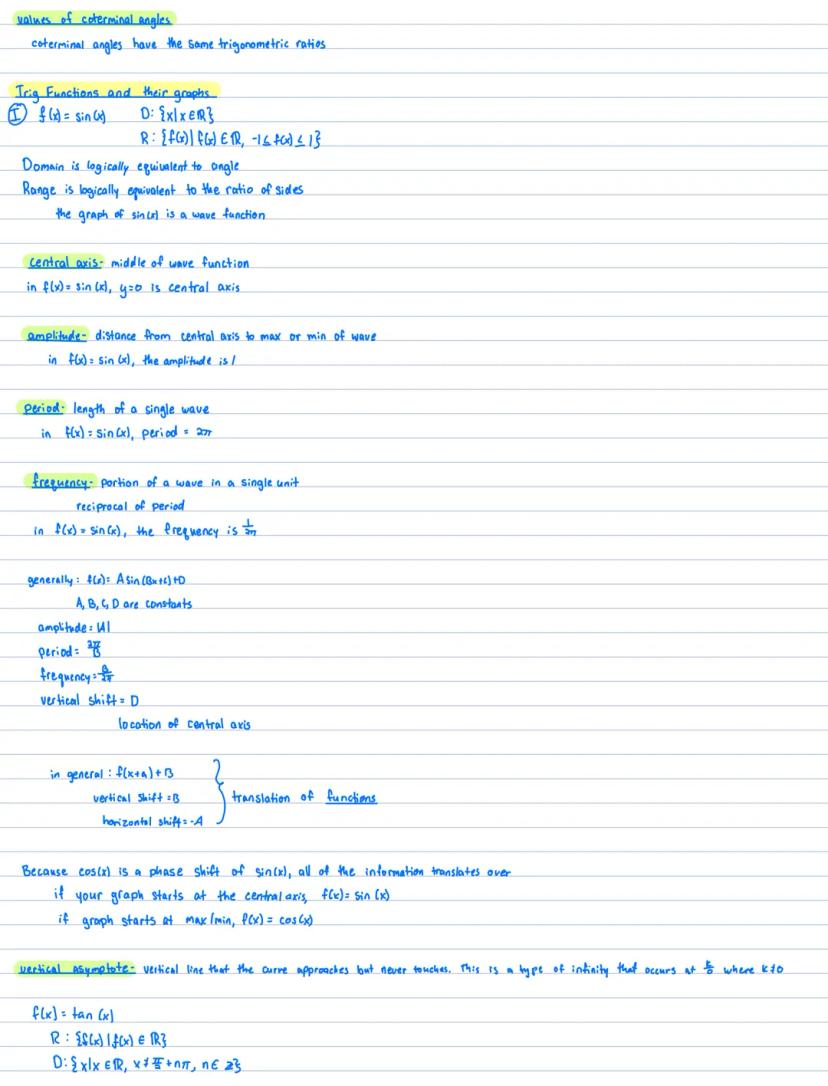 values of coterminal angles
coterminal angles have the same trigonometric ratios
Trig Functions and their graphs
I f(x) = sin(x) D: {x|x∈ℝ}
R: {f(x)| f(x) ∈ ℝ, -1 ≤ f(x) ≤ 1}
Domain is logically equivalent to angle
Range is logically equivalent to the ratio of sides
the graph of sin(x) is a wave function
central axis- middle of wave function
in f(x) = sin(x), y=0 is central axis
amplitude- distance from central axis to max or min of wave
in f(x) = sin(x), the amplitude is 1
period- length of a single wave
in f(x) = sin(x), period = 2π
frequency- portion of a wave in a single unit
reciprocal of period
in f(x) = sin(x), the frequency is 1/2π
generally: f(x) = A sin(Bx+C)+D
A, B, C, D are constants
amplitude = |A|
period = 2π/B
frequency = B/2π
vertical shift = D
location of central axis
in general: f(x+a)+B
vertical shift = B
translation of functions
horizontal shift = -A
Because cos(x) is a phase shift of sin(x), all of the information translates over
if your graph starts at the central axis, f(x) = sin(x)
if graph starts at max/min, f(x) = cos(x)
vertical asymptote- vertical line that the curve approaches but never touches. This is a type of infinity that occurs at k/0 where k≠0
f(x) = tan(x)
R: {f(x) | f(x) ∈ ℝ}
D: {x|x ∈ ℝ, x ≠ π/2 + nπ, n ∈ ℤ}